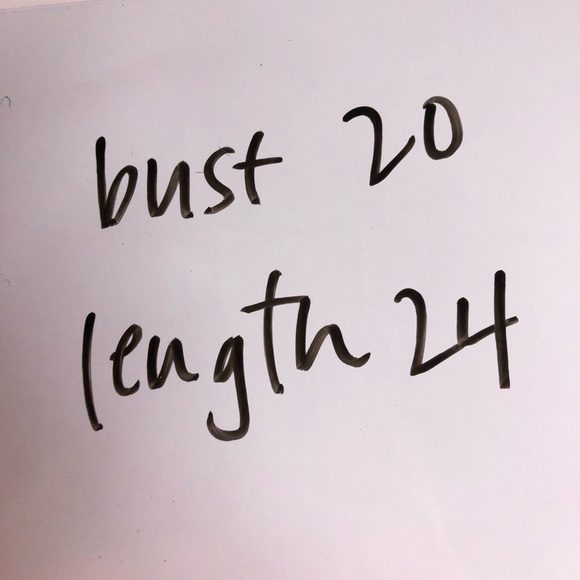 bust 20
length 24